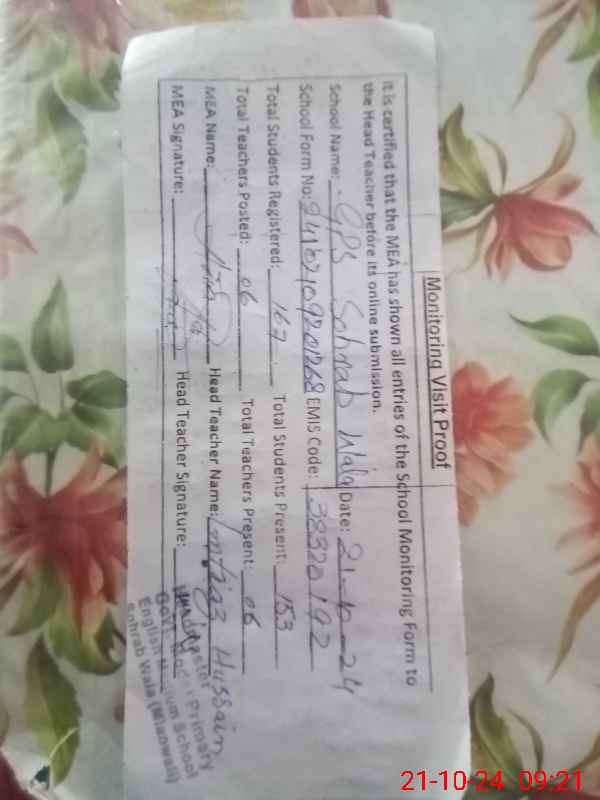 Monitoring Visit Proof
It is certified that the MEA has shown all entries of the School Monitoring Form to
the Head Teacher before its online submission.
School Name: GPS Sohrab Wala Date: 21-10-24
School Form No: EMIS Code: 38320192
Total Students Registered: 167 Total Students Present: 153
Total Teachers Posted: 06 Total Teachers Present: 06
MEA Name: Head Teacher Name: Imtiaz Hussain
MEA Signature: Head Teacher Signature:
Headmaster
Govt. Model Primary
English Medium School
Sohrab Wala (Mianwali)
21-10-24 09:21